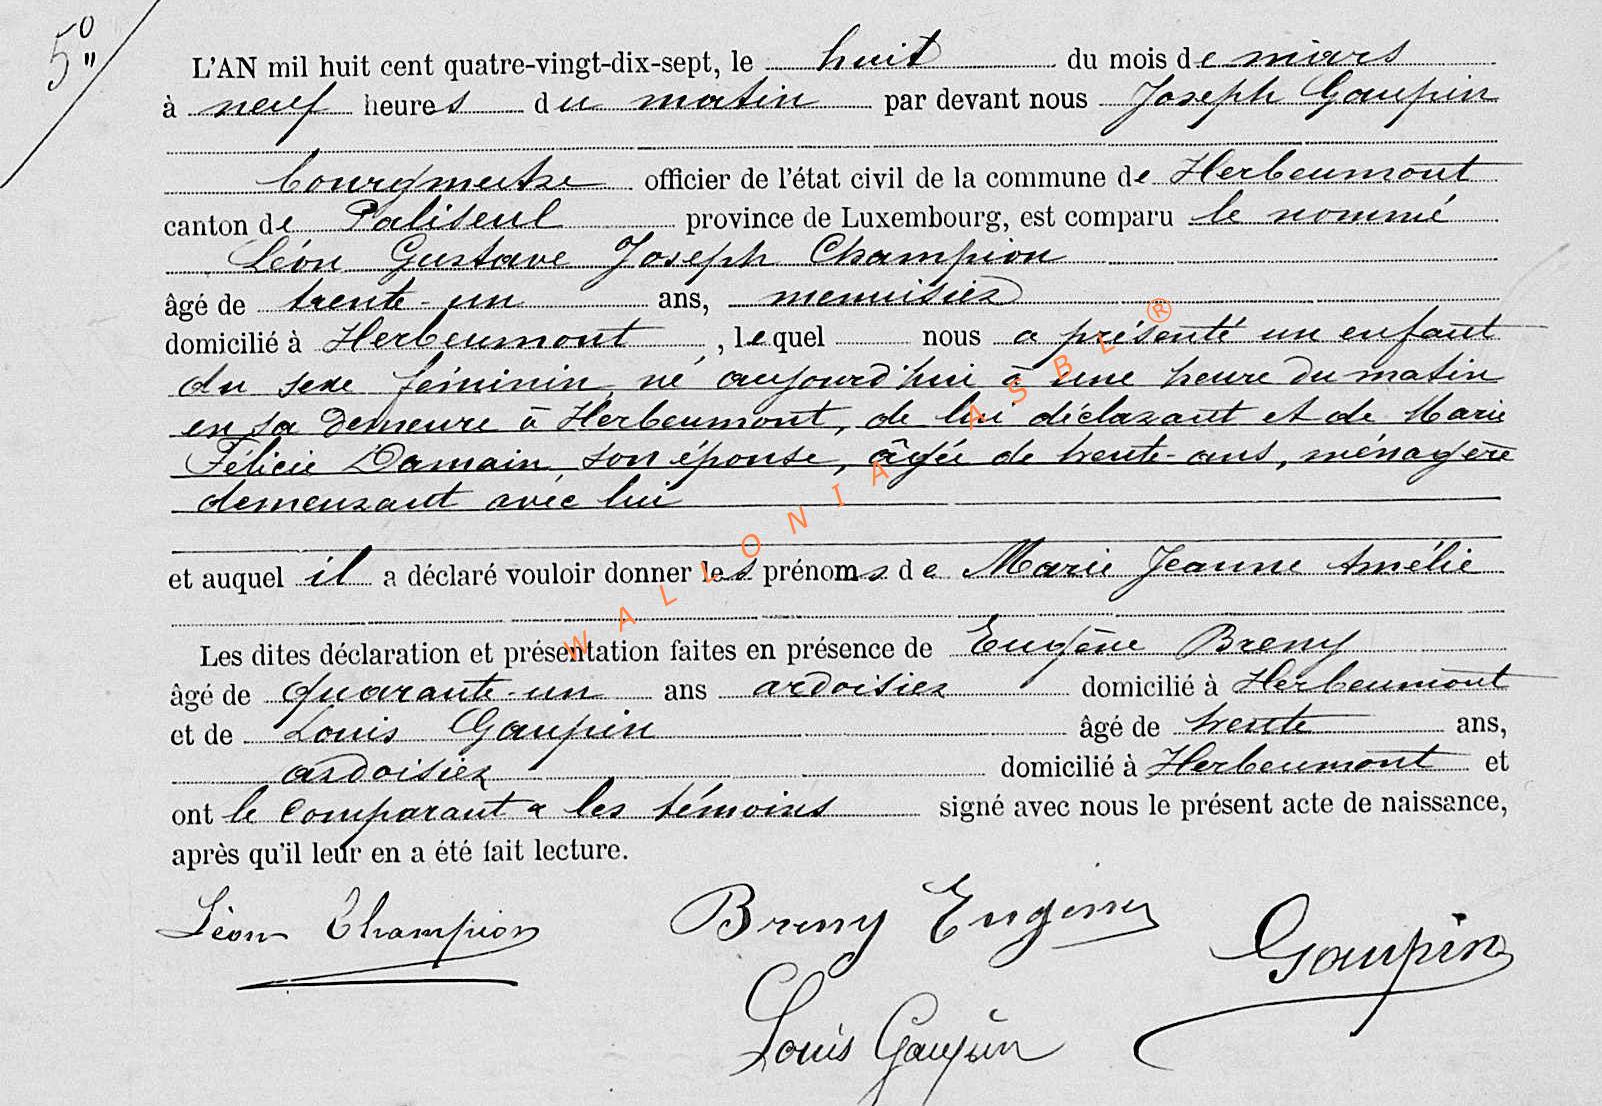 5º"
L'AN mil huit cent quatre-vingt-dix-sept, le huit du mois de mars
à neuf heures du matin par devant nous Joseph Gaupin
bourgmestre officier de l'état civil de la commune de Herbeumont
canton de Paliseul province de Luxembourg, est comparu le nommé
Léon Gustave Joseph Champion
âgé de trente-un ans, menuisier
domicilié à Herbeumont, lequel nous a présenté un enfant
du sexe féminin, né aujourd'hui à une heure du matin
en sa demeure à Herbeumont, de lui déclarant et de Marie
Félicie Damain son épouse, âgée de trente-ans, ménagère
demeurant avec lui
et auquel il a déclaré vouloir donner les prénoms de Marie Jeanne Amélie
Les dites déclaration et présentation faites en présence de Eugène Breny
âgé de quarante-un ans ardoisier domicilié à Herbeumont
et de Louis Gaupin âgé de trente ans,
ardoisier domicilié à Herbeumont et
ont le comparant & les témoins signé avec nous le présent acte de naissance,
après qu'il leur en a été fait lecture.
Léon Champion Breny Eugène Gaupin
Louis Gaupin
WALLONIA ASBL ®